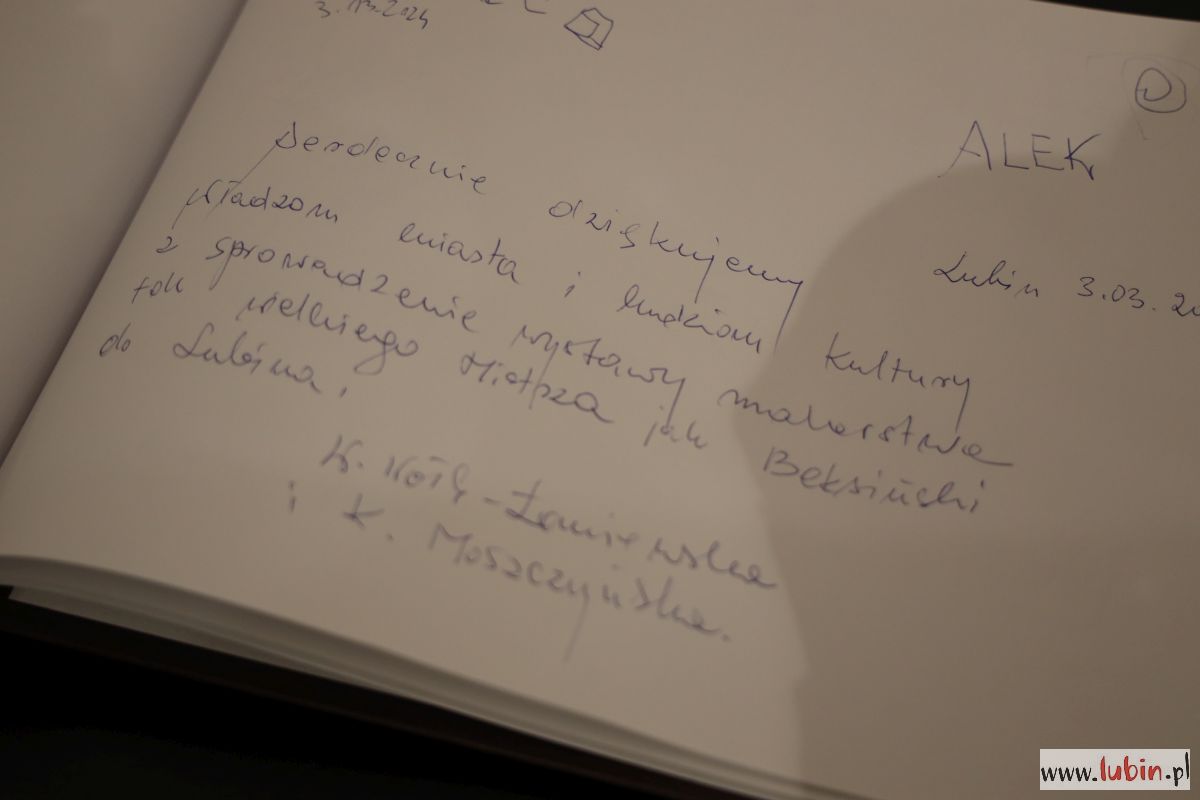 3. 2024
ALEK
Lubin 3.03.20
Serdecznie dziękujemy
władzom miasta i ludziom kultury
z sprowadzenie wystawy malarstwa
tak wielkiego Mistrza jak Beksiński
do Lubina,
K. Łomiewska
i K. Moszczyńska.
www.lubin.pl